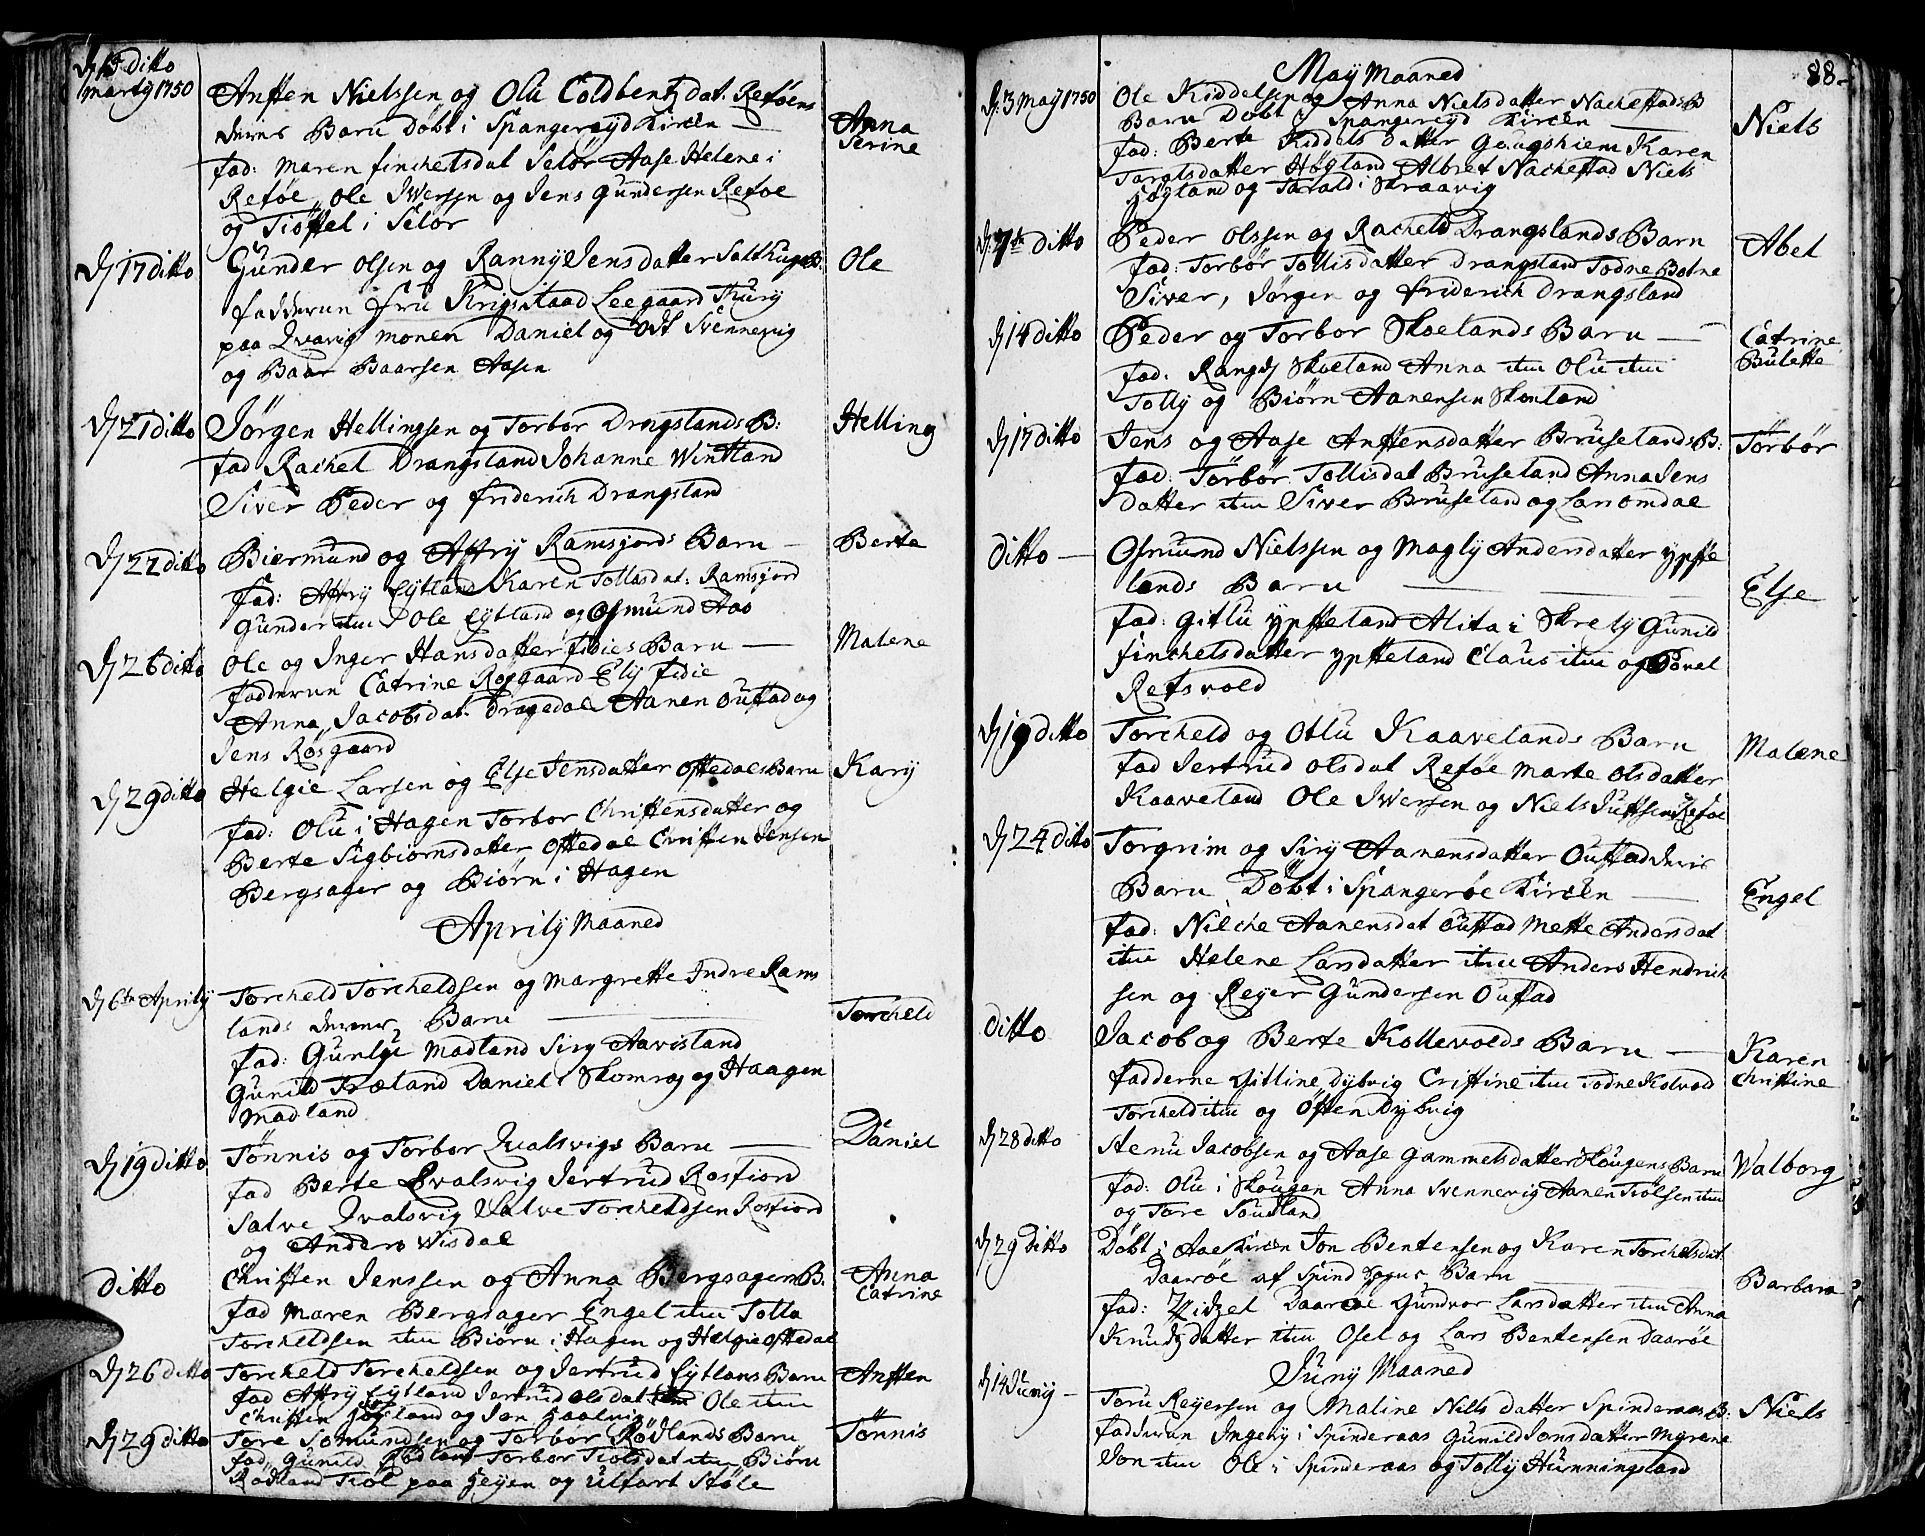 d 15 ditto
marty 1750
Ansten Nielssen og Olu Coldbentzdat. Reføens
deres Barn Døbt i Spangereyd Kirken —
Anna
Serine
fad: maren finchelsdat Selør Aase Helene i
Reføe, Ole Iwersen og Jens Gundersen Refoe
og Tiøstel i Selør
d 17 ditto
Gunder Olsen og Ranny Jensdatter Salthugs B:
Ole
fadderun fru Krigsstaad Leegaard Thury
paa Qvarig monen Daniel og Odt Svennevig
og Baar Baarsen Aasen
d 21 ditto
Jørgen Hellingsen og Torbor Drngslands B:
Helling
fad Rachel Drangsland Johanne Wintland
Siver Peder og friderich Drangsland
d 22 ditto
Biermund og Affry Ramsfjords Barn —
Berte
fad: Affry Eytland Karen Tollisdat: Ramsfjord
Gunder itm Ole Eytland og Osmund Aas
d 26 ditto
Ole og Inger Hansdatter fidies Barn —
Malene
fadderun Catrine Røsgaard Ely fidie
Anna Jacobsdat. Dragedal Aanen Oufstad og
Jens Røsgaard
d 29 ditto
Helgie Larsen og Else Jensdatter Oftedals Barn
Kary
fad: Olu i Hagen Torbor Christensdatter og
Berte Sigbiornsdatter Oftedal Cristen Jensen
Bergsager og Biørn i Hagen
Aprily Maaned
d 6te Aprily
Torcheld Torcheldsen og Margrette Indre Rams
lands deres Barn —
Torcheld
fad: Gunlye Madland Siry Aavisland
Gunild Træland Daniel Skomrag og Haagen
Madland
d 19 ditto
Tønnis og Torbor Qvalsvigs Barn —
Daniel
fad Berte Qvalsvig Jertrud Rosfiord
Salve Qvalsvig Salve Torcheldsen Rosfiord
og Anders Wisdal
ditto
Christen Jenssen og Anna Bergsagers B:
Anna
Catrine
fad Maren Bergsager Engel itm Tolla
Torcheldsen itm Biørn i Hagen og Helgie Oftedal
d 26 ditto
Torcheld Torcheldsen og Jertrud Eytlans Barn
Ansten
fad Affry Eytland Jertrud Olsdat itm Ole itm
Christen Høgland og Jon
d 29 ditto
Tore Somundsen og Torbor Rødlands Barn
Tønnis
fad Gunild Rødland Torbor Tiølsdat itm Biørn
Rødland Tiøl paa Heyen og Ulfart Støle
88
May Maaned
d. 3 May 1750
Ole Kiddelsen og Anna Nielsdatter Nachestads B
Barn Døbt i Spangereyd Kircken —
Niels
fad: Berte Kiddels datter Gougshiem Karen
Taraldsdatter Høgland Albret Nachestad Niels
Høgland og Tarald i Skraavig
d. 7de ditto
Peder Olssen og Racheld Drangslands Barn
Abel
fad: Torbør Tollisdatter Drangsland Todne Botne
Siver, Jørgen og friderich Drangsland
d 14 ditto
Peder og Torbor Skoelands Barn —
Catrine
Bulette
fad: Rangd Skoeland Anna itm Olu itm
Tolly og Biørn Aanensen Skoeland
d 17 ditto
Jens og Aase Anstensdatter Bruselands B:
Tørbør
fad: Tørbør Tollisdat Bruseland Anna Jens
datter itm Siver Bruseland og Lars omdal
ditto —
Osmund Nielssen og Magly Andersdatter ypste
lands Barn —
Else
fad: Gitlu ypsteland Alita i Skrely Gunild
finchelsdatter ypsteland Claus itm og Povel
Refsvold
d 19 ditto
Torcheld og Otlu Kaavelands Barn
Malene
fad Jertrud Olsdat Reføe Marte Olsdatter
Kaaveland Ole Iwersen og Niels Justsen Refoe
d 24 ditto
Torgrim og Siry Aanensdatter Oufstad deris
Barn Døbt i Spangerøe Kircken —
Engel
fad: Nilche Aanensdat Oufstad Mette Andersdat
itm Helene Larsdatter itm Anders Hendrich
sen og Reyer Gundersen Oufstad
ditto
Jacob og Berte Kollevolds Barn —
Karen
Christine
fadderne Gitline Dybvig Cristine itm Todne Kolvold
Torcheld itm og Østen Dybvig
d 28 ditto
Stenu Jacobsen og Aase Gammelsdatter Skougens Barn
Walborg
fad: Olu i Skougen Anna Svennevig Aanen Tiølsen itm
og Tore Soudland
d 29 ditto
Døbt i Aae Kircken Jon Bentensen og Karen Torchelsdat
Daarøe af Spind Sogns Barn —
Barbara
fad: Zidzel Daarøe Gundvor Larsdatter itm Anna
Knudz datter itm Osel og Lars Bentensen Daarøe
Juny Maaned
d 14 Juny —
Toru Reyersen og Maline Nills datter Spinderaas B:
Niels
fadderun Ingebiy i Spinderaas Gunild Jonsdatter Mgrene
Jon itm Ole i Spinderaas og Tolly Hunningsland